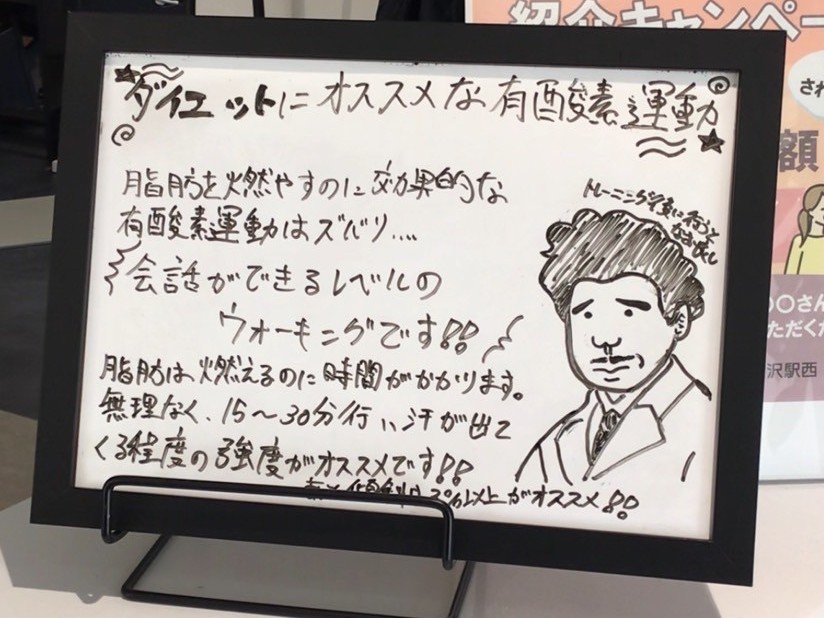 紹介キャンペー
額
沢駅西
ダイエットにオススメな有酸素運動
脂肪を燃やすのに効果的な
有酸素運動はズバリ....
会話ができるレベルの
ウォーキングです!!
脂肪は燃えるのに時間がかかります。
無理なく、15〜30分行い汗が出て
くる程度の強度がオススメです!!
傾斜は3%以上がオススメ!!
トレーニング後に行うと
なお良し
さん
ただく